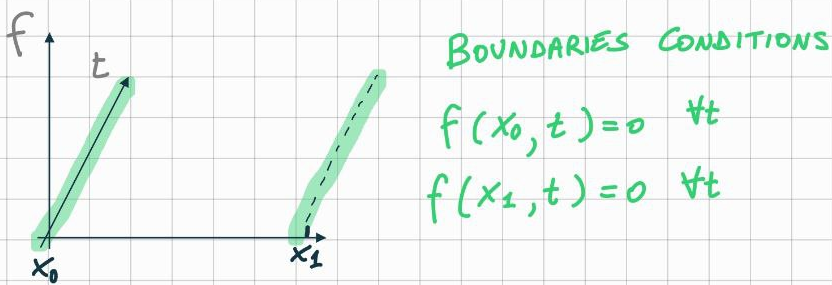 f
t
x₀
x₁
BOUNDARIES CONDITIONS
f(x₀,t)=0 ∀t
f(x₁,t)=0 ∀t